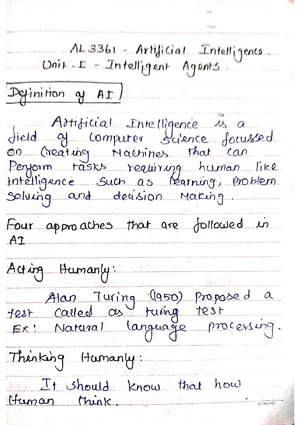 AL3361 - Artificial Intelligence.
Unit - I - Intelligent Agents.
Definition of AI
Artificial Intelligence is a
field of Computer Science focussed
on Creating Machines that can
Perform tasks requiring human like
intelligence such as learning, Problem
Solving and decision Making.
Four approaches that are followed in
AI
Acting Humanly:
Alan Turing (1950) proposed a
test called as turing test
Ex: Natural language processing.
Thinking Humanly:
It should know that how
Human think.